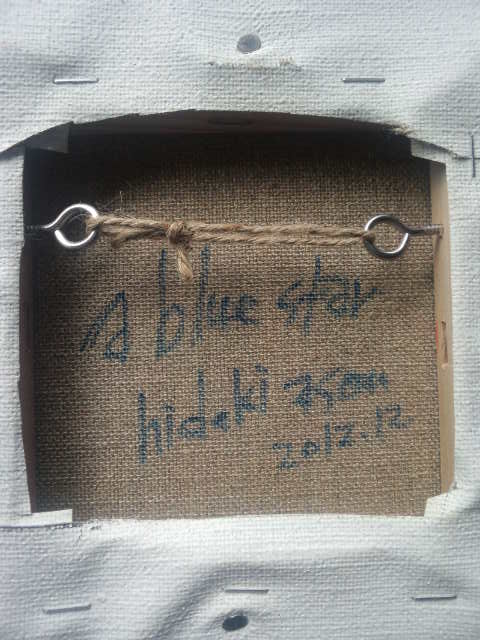 a blue star
hideki
2012.12